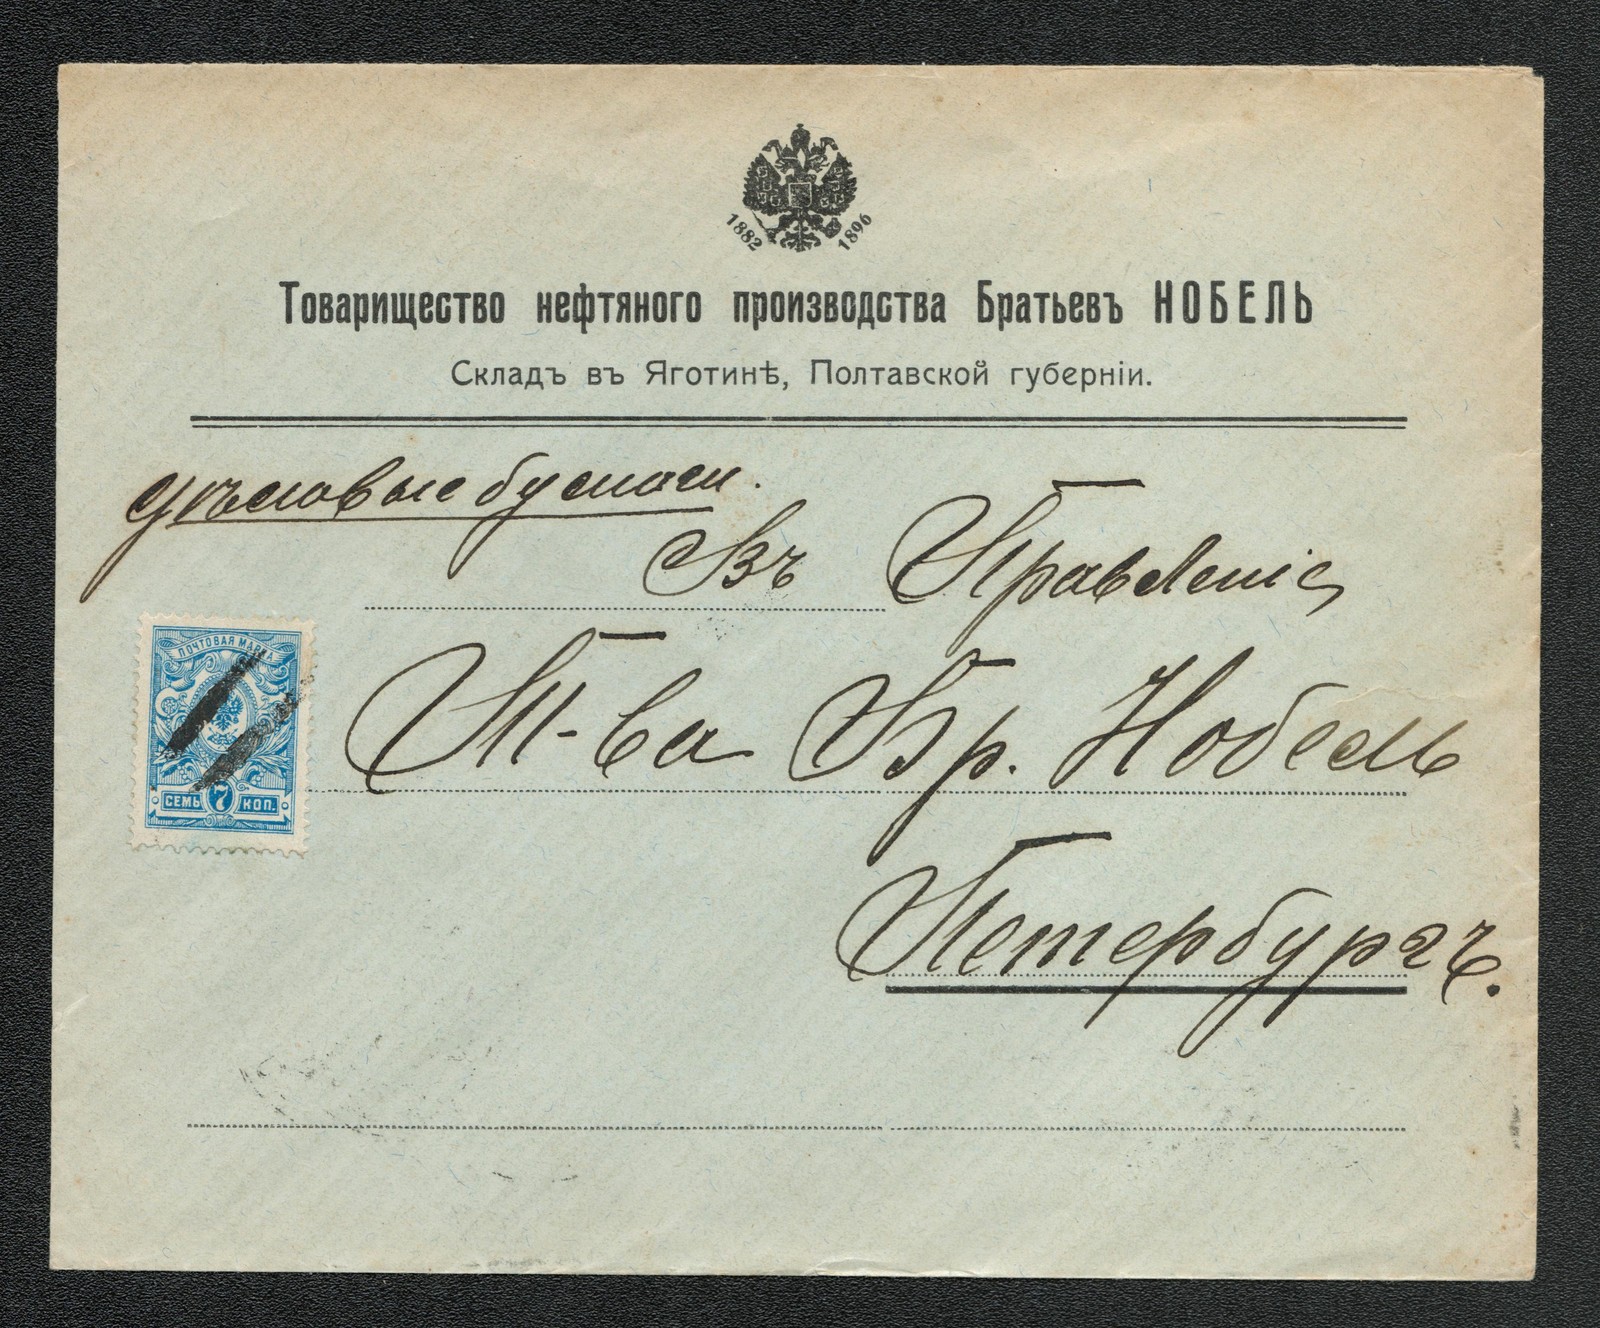 1882 1896
Товарищество нефтяного производства Братьевъ НОБЕЛЬ
Складъ въ Яготинѣ, Полтавской губернiи.
Дѣловые бумаги.
Въ Правленiе
Т-ва Бр. Нобель
Петербургъ.
ПОЧТОВАЯ МАРКА
СЕМЬ 7 КОП.